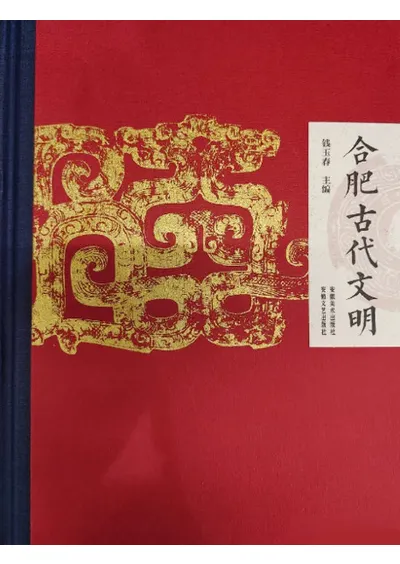 合肥古代文明
钱玉春 主编
安徽美术出版社
安徽文艺出版社